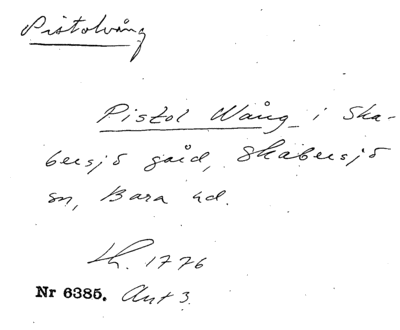 Pistolvång
Pistol Wång i Ska-
bersjö gård, Skabersjö
sn, Bara hd.
Lh. 1776
Nr 6385. Avt 3.